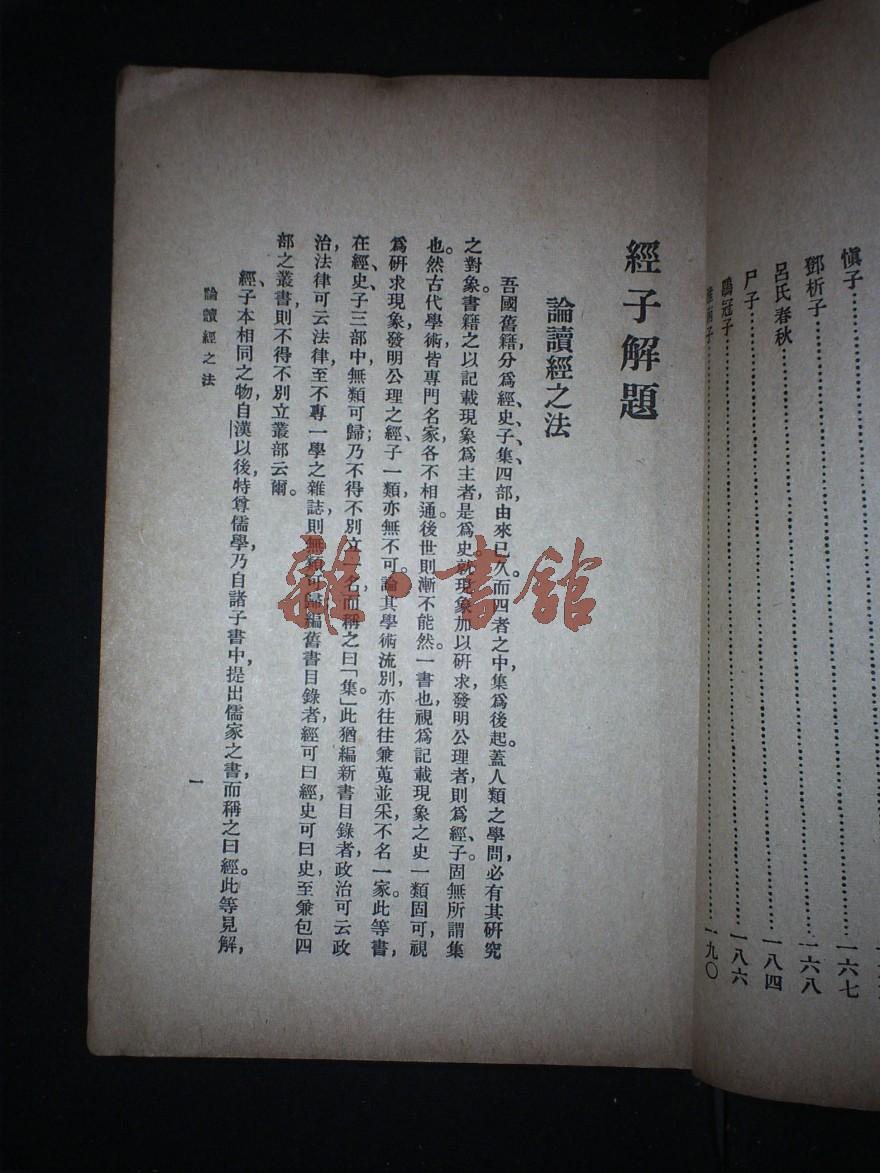 慎子………………一六七
鄧析子………………一六八
呂氏春秋………………一八四
尸子………………一八六
鶡冠子………………一九〇
經子解題
論讀經之法
吾國舊籍分爲經、史、子、集四部，由來已久。而四者之中集爲後起。蓋人類之學問，必有其研究
之對象。書籍之以記載現象爲主者，是爲史。就現象加以研求發明公理者，則爲經、子。固無所謂集
也。然古代學術皆專門名家，各不相通。後世則漸不能然。一書也，視爲記載現象之史一類固可，視
爲研求現象，發明公理之經、子一類，亦無不可。論其學術流別，亦往往兼蒐並采，不名一家。此等書，
在經、史、子三部中，無類可歸；乃不得不別立一名，而稱之曰「集」。此猶編新書目錄者，政治可云政
治，法律可云法律，至不專一學之雜誌，則無類可歸；編舊書目錄者，經可曰經，史可曰史，至兼包四
部之叢書，則不得不別立叢部云爾。
經、子本相同之物，自漢以後，特尊儒學，乃自諸子書中，提出儒家之書，而稱之曰經。此等見解，
論讀經之法
一
龍·書館